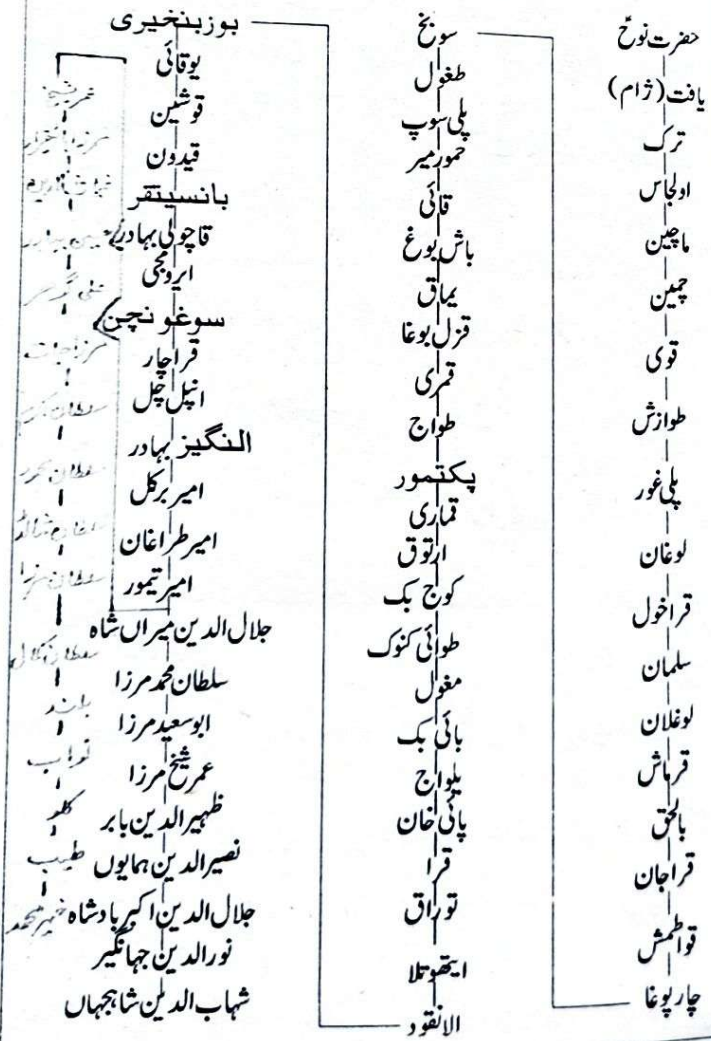 حضرت نوحؑ
یافت (ژام)
ترک
اولجاس
ماچین
چمین
قوی
طوازش
پلی غور
لوغان
قراخول
سلمان
لوغلان
قرہاش
بالحق
قراجان
قواطمش
چار پوغا
سوبخ
طغول
پلی سوپ
حمور میر
قائی
باش بوغ
یماق
قزل بوغا
قمری
طواج
پکتمور
قماری
ارتوق
کوج بک
طوائی کنوک
مغول
بائی بک
یلواج
پائی خان
قرا
توراق
ایتھوتلا
الانقود
بوزبنخیری
یوقائی
قوشین
قیدون
بانسیتقر
قاچولی بہادر
ایرومجی
سوغو نچن
قراچار
انپل چل
النگیز بہادر
امیر برکل
امیر طراغان
امیر تیمور
جلال الدین میراں شاہ
سلطان محمد مرزا
ابو سعید مرزا
عمر شیخ مرزا
ظہیر الدین بابر
نصیر الدین ہمایوں
جلال الدین اکبر بادشاہ
نور الدین جہانگیر
شہاب الدین شاہجہاں
عمر شیخ
سلطان
سلطان
سلطان
سلطان
بلند
نواب
کلو
طیب
محمد